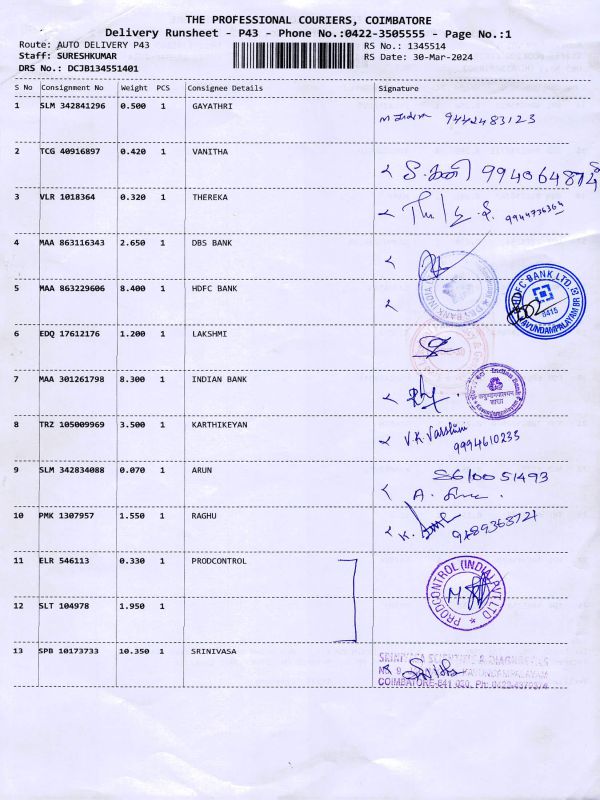 THE PROFESSIONAL COURIERS, COIMBATORE
Delivery Runsheet - P43 - Phone No.:0422-3505555 - Page No.:1
Route: AUTO DELIVERY P43 RS No.: 1345514
Staff: SURESHKUMAR RS Date: 30-Mar-2024
DRS No.: DCJB134551401
S No Consignment No Weight PCS Consignee Details Signature
1 SLM 342841296 0.500 1 GAYATHRI 9442483123
2 TCG 40916897 0.420 1 VANITHA
3 VLR 1018364 0.320 1 THEREKA 9944736364
4 MAA 863116343 2.650 1 DBS BANK
DBS BANK INDIA
5 MAA 863229606 8.400 1 HDFC BANK
HDFC BANK LTD.
8415
6 EDQ 17612176 1.200 1 LAKSHMI
7 MAA 301261798 8.300 1 INDIAN BANK
Indian Bank
8 TRZ 105009969 3.500 1 KARTHIKEYAN V.K Varshini
9994610235
9 SLM 342834088 0.070 1 ARUN
A.
10 PMK 1307957 1.550 1 RAGHU K.
11 ELR 546113 0.330 1 PRODCONTROL
PRODCONTROL (INDIA) PVT LTD
12 SLT 104978 1.950 1
13 SPB 10173733 10.350 1 SRINIVASA
SRINIVASA SCIENTIFIC & DIAGNOSTICS
KAVUNDAMPALAYAM